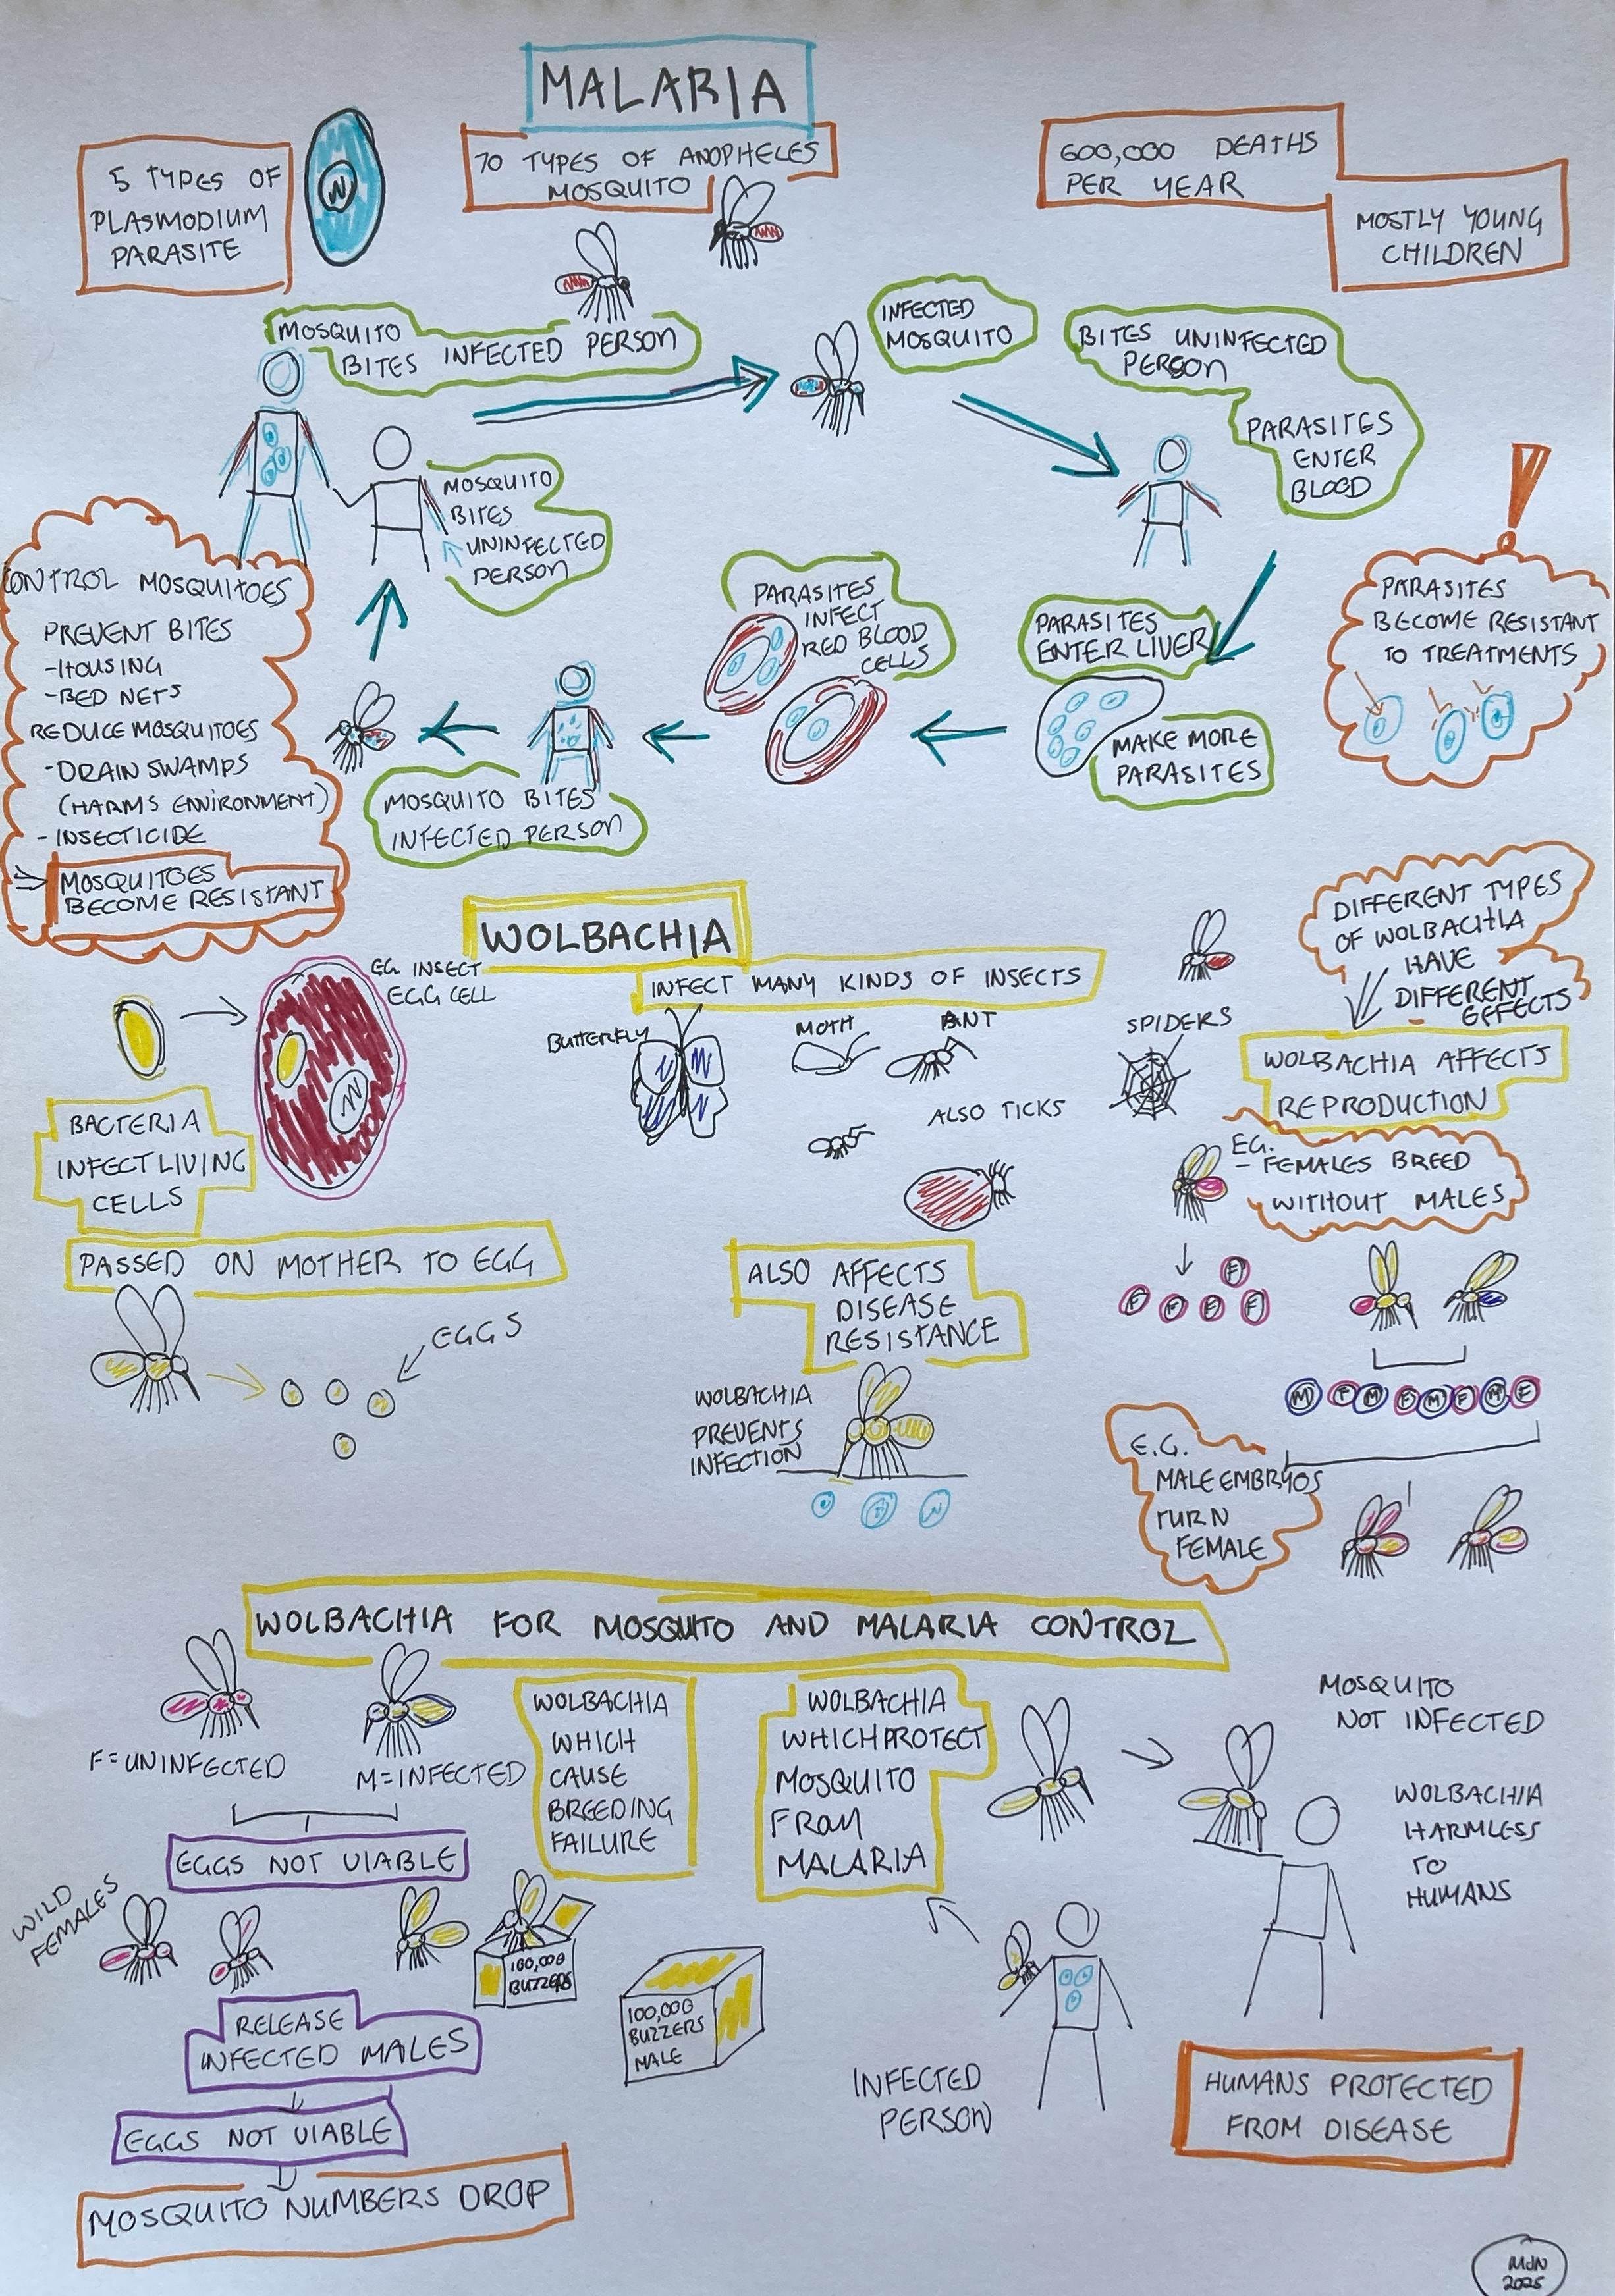 MALARIA
5 TYPES OF
PLASMODIUM
PARASITE
N
70 TYPES OF ANOPHELES
MOSQUITO
600,000 DEATHS
PER YEAR
MOSTLY YOUNG
CHILDREN
MOSQUITO
BITES INFECTED PERSON
INFECTED
MOSQUITO
BITES UNINFECTED
PERSON
PARASITES
ENTER
BLOOD
MOSQUITO
BITES
UNINFECTED
PERSON
CONTROL MOSQUITOES
PREVENT BITES
-HOUSING
-BED NETS
REDUCE MOSQUITOES
-DRAIN SWAMPS
(HARMS ENVIRONMENT)
-INSECTICIDE
MOSQUITOES
BECOME RESISTANT
PARASITES
INFECT
RED BLOOD
CELLS
PARASITES
ENTER LIVER
MAKE MORE
PARASITES
PARASITES
BECOME RESISTANT
TO TREATMENTS
MOSQUITO BITES
INFECTED PERSON
WOLBACHIA
INFECT MANY KINDS OF INSECTS
EG. INSECT
EGG CELL
N
BUTTERFLY
MOTH
ANT
SPIDERS
ALSO TICKS
DIFFERENT TYPES
OF WOLBACHIA
HAVE
DIFFERENT
EFFECTS
WOLBACHIA AFFECTS
REPRODUCTION
EG.
- FEMALES BREED
WITHOUT MALES
BACTERIA
INFECT LIVING
CELLS
PASSED ON MOTHER TO EGG
EGGS
ALSO AFFECTS
DISEASE
RESISTANCE
WOLBACHIA
PREVENTS
INFECTION
F
F F F F
M F M F M F M F
E.G.
MALE EMBRYOS
TURN
FEMALE
WOLBACHIA FOR MOSQUITO AND MALARIA CONTROL
F=UNINFECTED
M=INFECTED
EGGS NOT VIABLE
WOLBACHIA
WHICH
CAUSE
BREEDING
FAILURE
WOLBACHIA
WHICH PROTECT
MOSQUITO
FROM
MALARIA
MOSQUITO
NOT INFECTED
WOLBACHIA
HARMLESS
TO
HUMANS
WILD
FEMALES
100,000
BUZZERS
100,000
BUZZERS
MALE
RELEASE
INFECTED MALES
EGGS NOT VIABLE
MOSQUITO NUMBERS DROP
INFECTED
PERSON
HUMANS PROTECTED
FROM DISEASE
MJN
2025